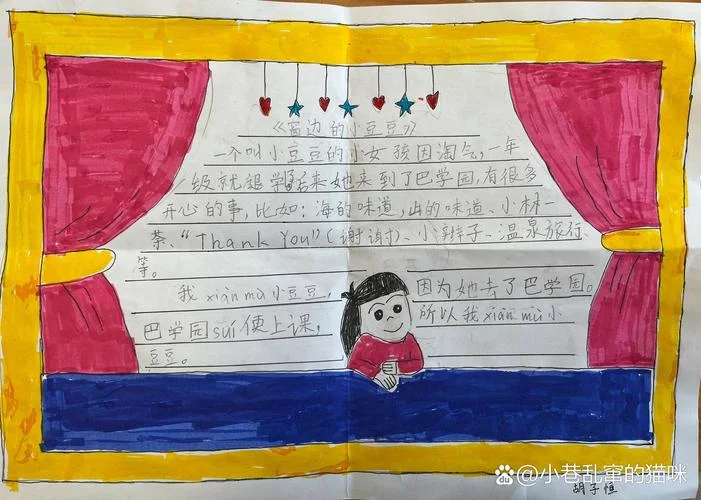 《窗边的小豆豆》
一个叫小豆豆的小女孩因淘气,一年
级就退学后来她来到了巴学园,有很多
开心的事,比如:海的味道,山的味道、小林一
茶、“Thank You”(谢谢)、小辫子、温泉旅行
等。
我xiàn mù小豆豆,因为她去了巴学园。
巴学园suí便上课,所以我xiàn mù小
豆豆。
@小巷乱窜的猫咪
胡子恒